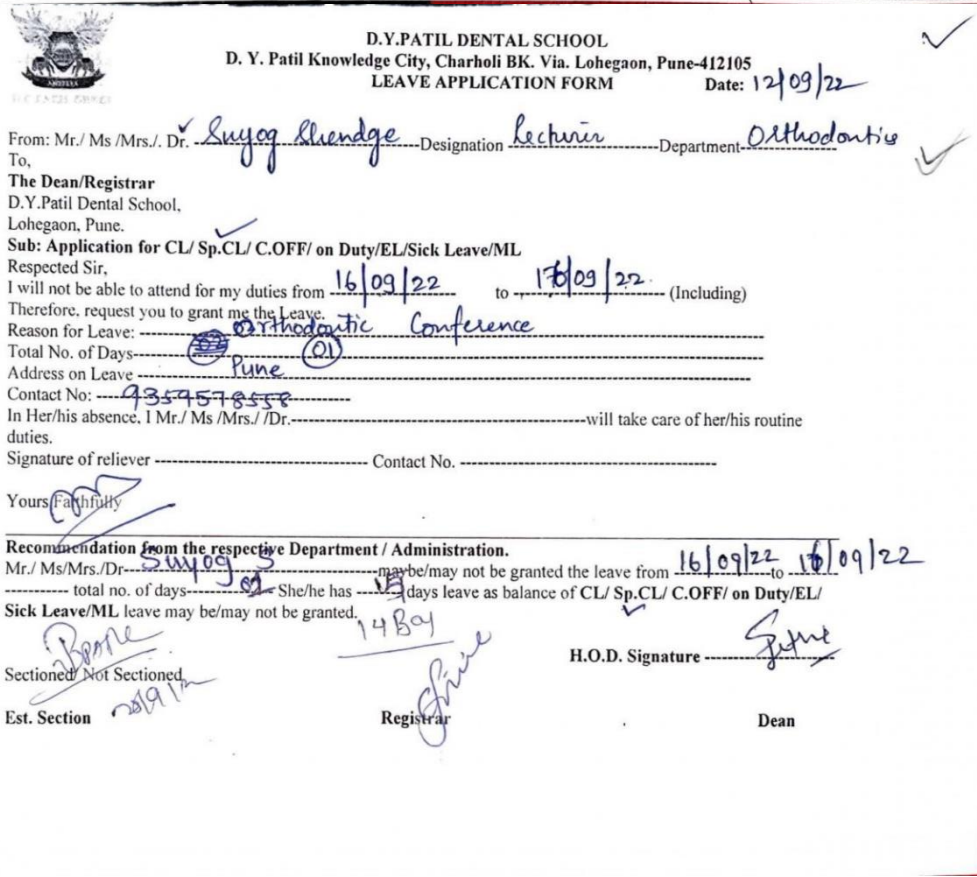 D.Y.PATIL DENTAL SCHOOL
D. Y. Patil Knowledge City, Charholi BK. Via. Lohegaon, Pune-412105
LEAVE APPLICATION FORM Date: 12/09/22
From: Mr./ Ms /Mrs./. Dr. Suyog Shendge Designation Lecturer Department Orthodontics
To,
The Dean/Registrar
D.Y.Patil Dental School,
Lohegaon, Pune.
Sub: Application for CL/ Sp.CL/ C.OFF/ on Duty/EL/Sick Leave/ML
Respected Sir,
I will not be able to attend for my duties from 16/09/22 to 16/09/22 (Including)
Therefore, request you to grant me the Leave.
Reason for Leave: Orthodontic Conference
Total No. of Days 01
Address on Leave Pune
Contact No: 9359578558
In Her/his absence, I Mr./ Ms /Mrs./ /Dr. will take care of her/his routine
duties.
Signature of reliever Contact No.
Yours Faithfully
Recommendation from the respective Department / Administration.
Mr./ Ms/Mrs./Dr Suyog S maybe/may not be granted the leave from 16/09/22 to 16/09/22
total no. of days She/he has 15 days leave as balance of CL/ Sp.CL/ C.OFF/ on Duty/EL/
Sick Leave/ML leave may be/may not be granted.
14 Bal
H.O.D. Signature
Sectioned/ Not Sectioned
Est. Section Registrar Dean